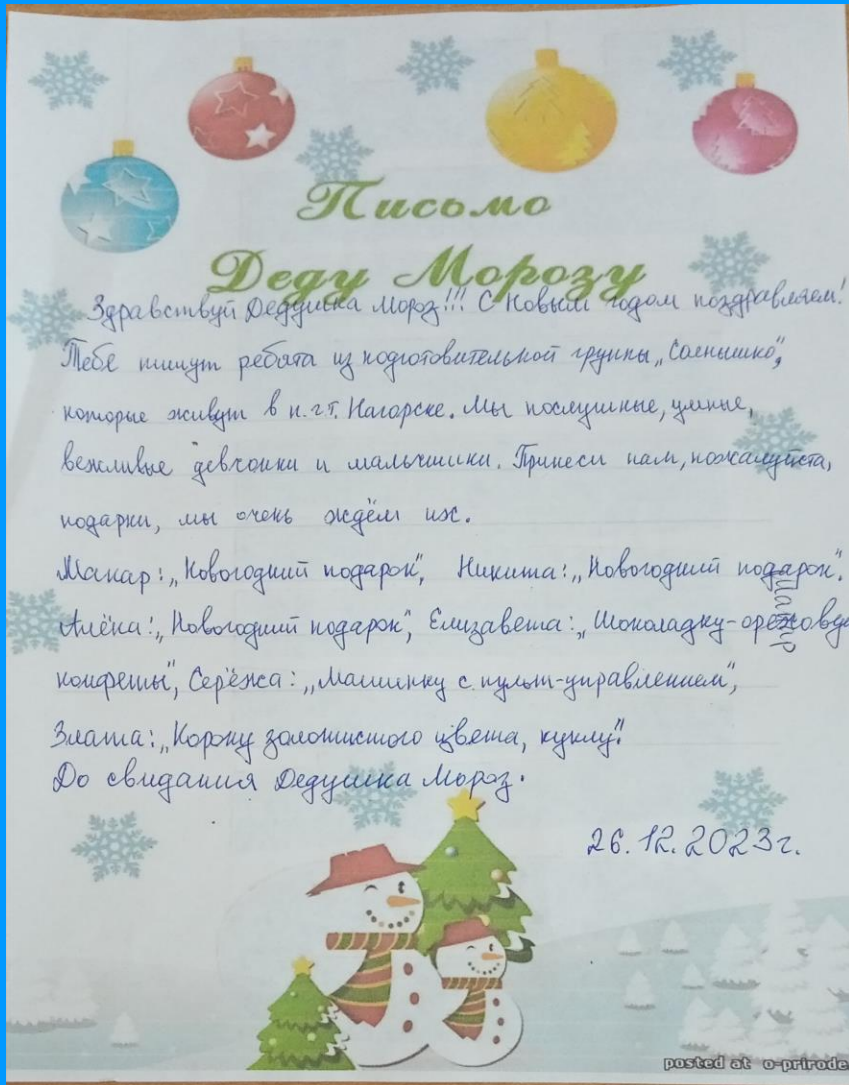 Письмо
Деду Морозу
Здравствуй Дедушка Мороз!!! С Новым годом поздравляем!
Тебе пишут ребята из подготовительной группы „Солнышко",
которые живут в п.г.т. Нагорске. Мы послушные, умные,
вежливые девчонки и мальчишки. Принеси нам, пожалуйста,
подарки, мы очень ждём их.
Макар: „Новогодний подарок", Никита: „Новогодний подарок".
Алёна: „Новогодний подарок", Елизавета: „Шоколадку-ореховую
конфеты", Серёжа: „Машинку с пульт-управлением",
Злата: „Корону золотистого цвета, куклу".
До свидания Дедушка Мороз.
26.12.2023г.
posted at o-prirode